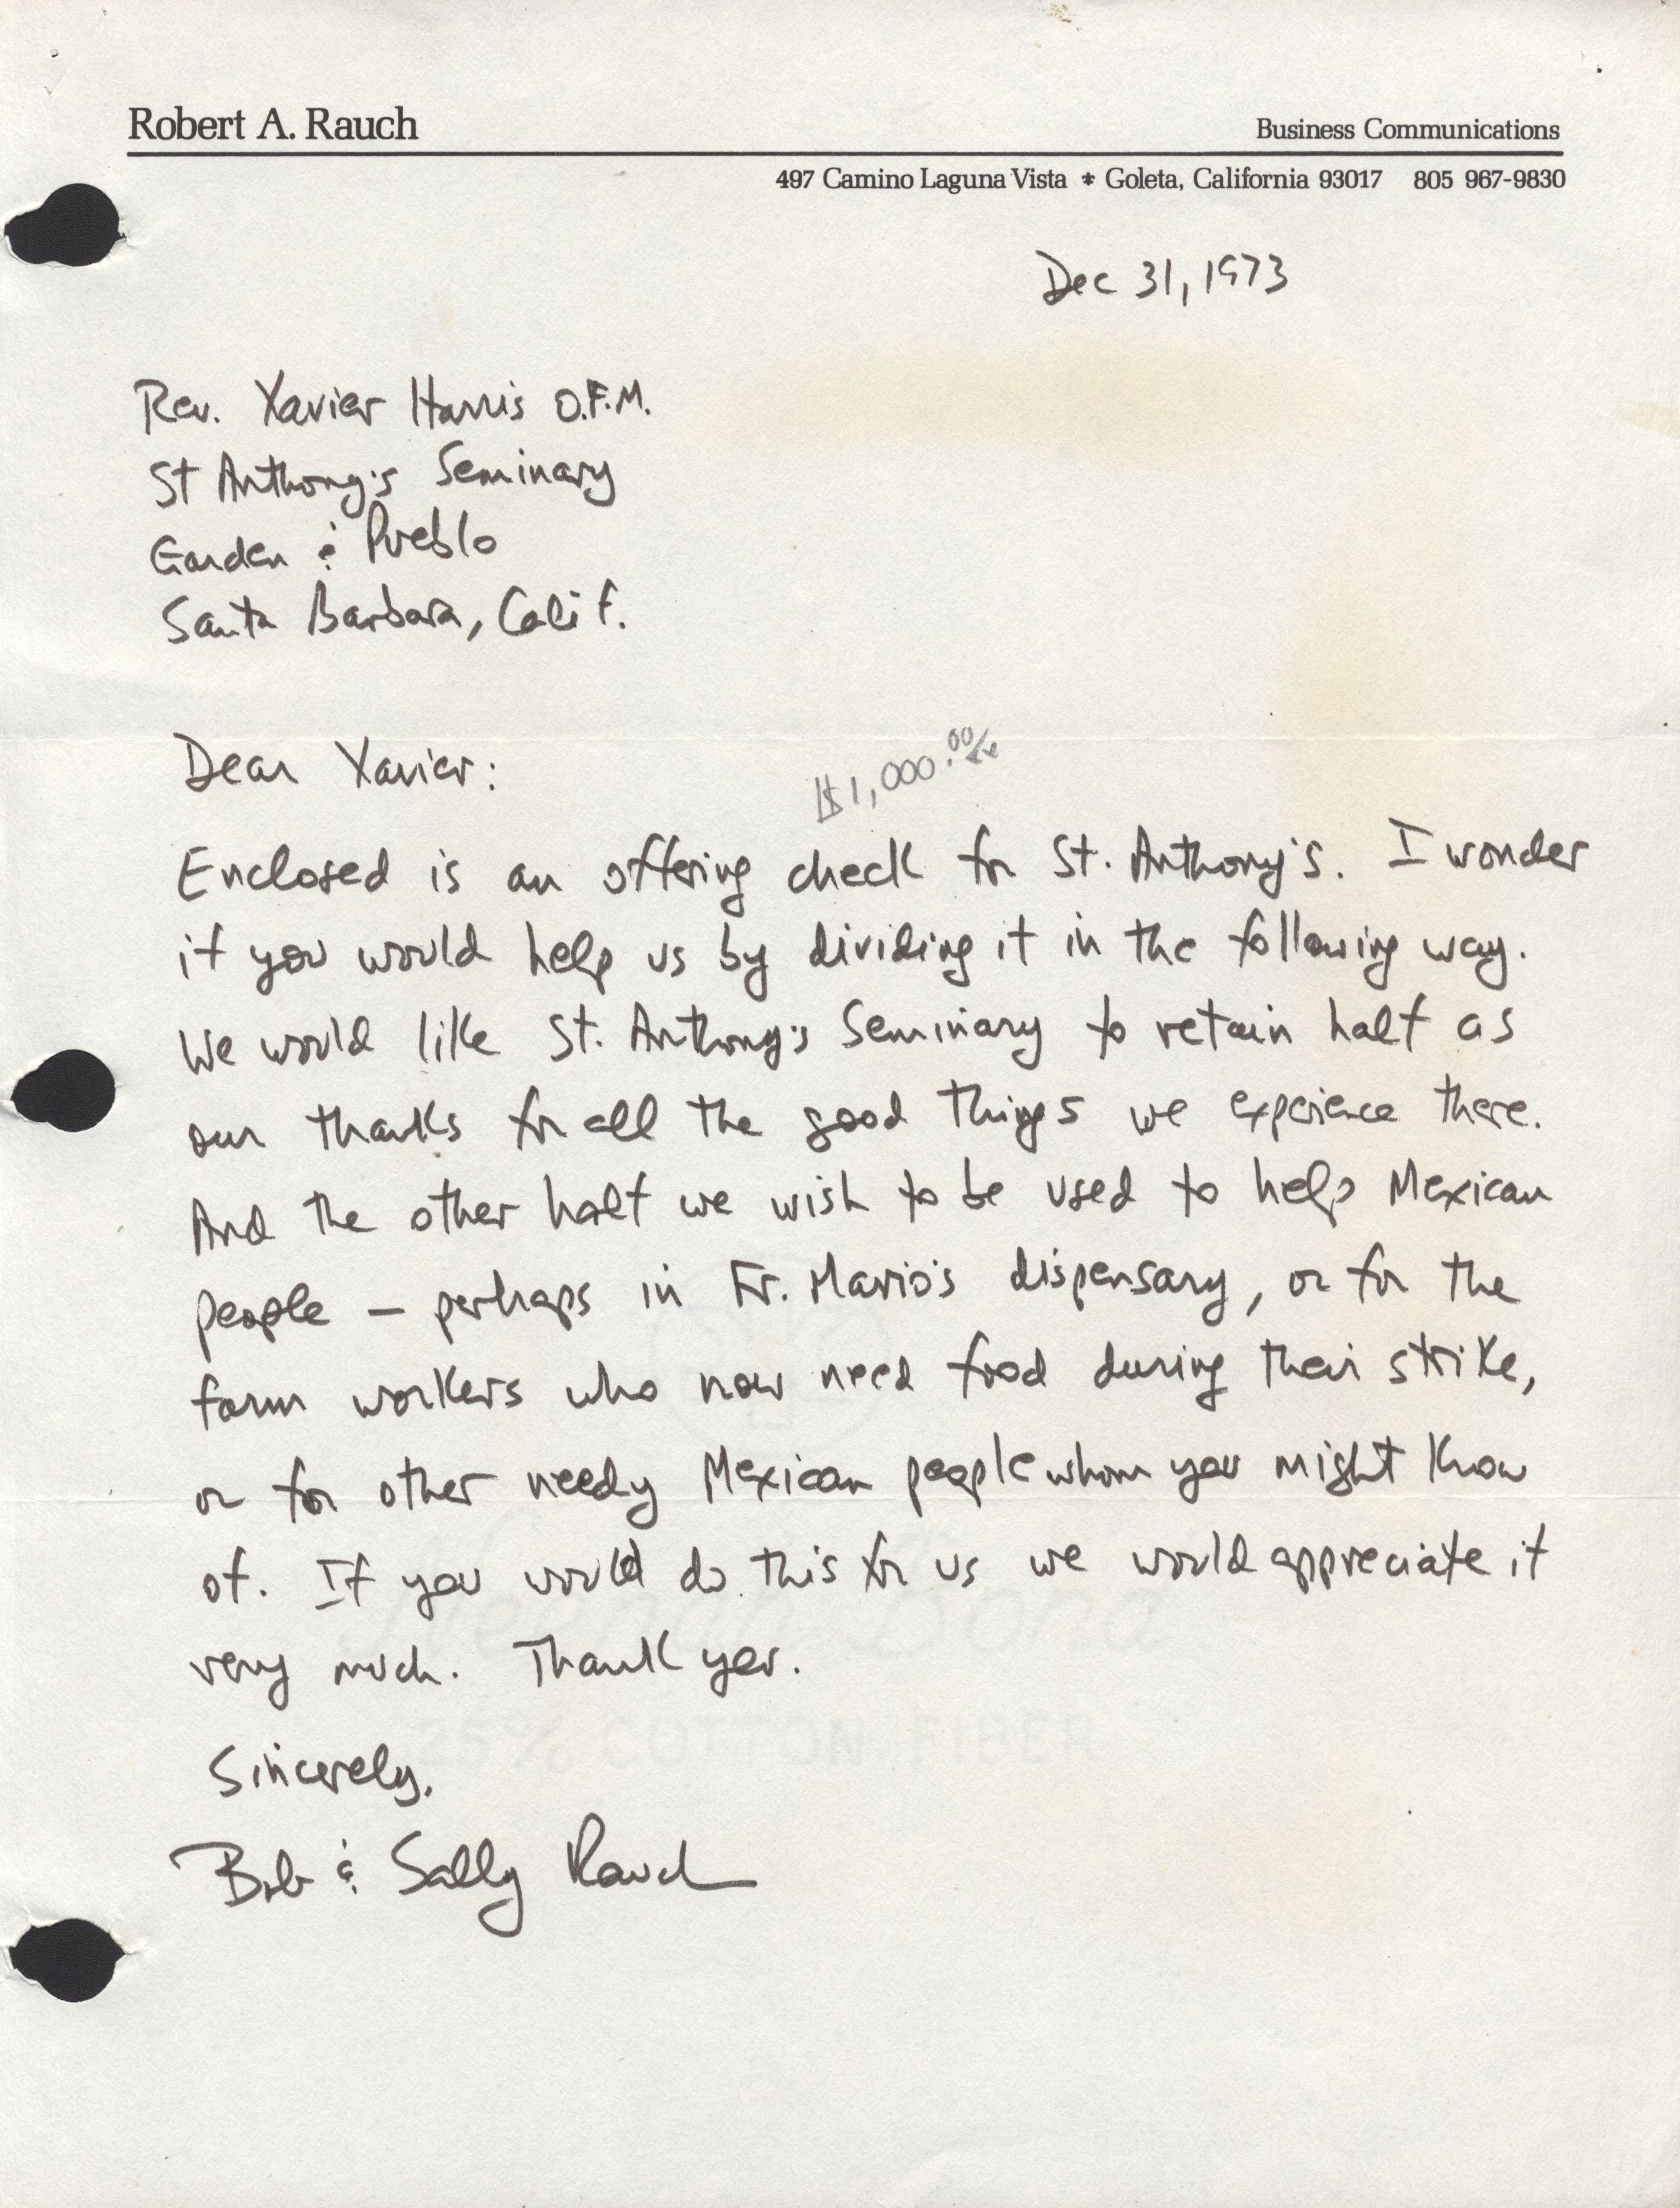 Robert A. Rauch
Business Communications
497 Camino Laguna Vista ⚜ Goleta, California 93017 805 967-9830
Dec 31, 1973
Rev. Xavier Harris O.F.M.
St Anthony's Seminary
Garden & Pueblo
Santa Barbara, Calif.
Dear Xavier:
$1,000.00/xx
Enclosed is an offering check for St. Anthony's. I wonder
if you would help us by dividing it in the following way.
We would like St. Anthony's Seminary to retain half as
our thanks for all the good things we experience there.
And the other half we wish to be used to help Mexican
people — perhaps in Fr. Mario's dispensary, or for the
farm workers who now need food during their strike,
or for other needy Mexican people whom you might know
of. If you would do this for us we would appreciate it
very much. Thank you.
25% COTTON FIBER
Sincerely,
Bob & Sally Rauch